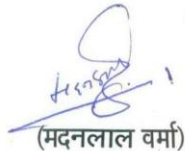 (मदनलाल वर्मा)